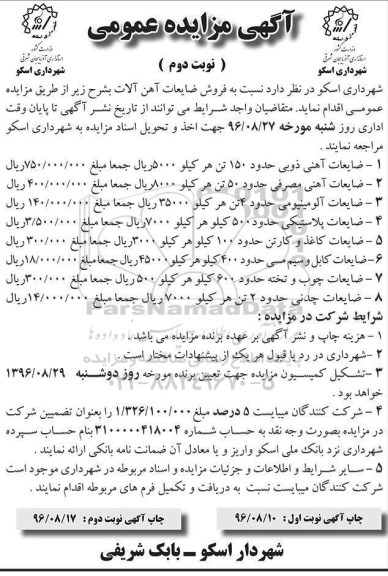 آگهی مزایده عمومی
( نوبت دوم )
وزارت کشور
استانداری آذربایجان شرقی
شهرداری اسکو
وزارت کشور
استانداری آذربایجان شرقی
شهرداری اسکو
شهرداری اسکو در نظر دارد نسبت به فروش ضایعات آهن آلات بشرح زیر از طریق مزایده
عمومی اقدام نماید. متقاضیان واجد شرایط می توانند از تاریخ نشر آگهی تا پایان وقت
اداری روز شنبه مورخه ۹۶/۰۸/۲۷ جهت اخذ و تحویل اسناد مزایده به شهرداری اسکو
مراجعه نمایند .
۱ - ضایعات آهنی ذوبی حدود ۱۵۰ تن هر کیلو ۵۰۰۰ریال جمعا مبلغ ۷۵۰/۰۰۰/۰۰۰ریال
۲ - ضایعات آهنی مصرفی حدود ۵۰ تن هر کیلو ۸۰۰۰ریال جمعا مبلغ ۴۰۰/۰۰۰/۰۰۰ ریال
۳ - ضایعات آلومینیومی حدود ۴تن هر کیلو ۳۵۰۰۰ ریال جمعا مبلغ ۱۴۰/۰۰۰/۰۰۰ ریال
۴ - ضایعات پلاستیکی حدود۵۰۰ کیلو هر کیلو ۷۰۰۰ریال جمعا مبلغ ۳/۵۰۰/۰۰۰ریال
۵ - ضایعات کاغذ و کارتن حدود ۱۰۰ کیلو هر کیلو۳۰۰۰ریال جمعا مبلغ ۳۰۰/۰۰۰ ریال
۶- ضایعات کابل وسیم مسی حدود ۴۰۰کیلو هر کیلو۴۵۰۰۰ریال جمعا مبلغ۱۸/۰۰۰/۰۰۰ریال
۷ - ضایعات چوب و تخته حدود ۶۰۰ کیلو هر کیلو ۵۰۰ ریال جمعا مبلغ ۳۰۰/۰۰۰ریال
۸ - ضایعات چدنی حدود ۲ تن هر کیلو ۷۰۰۰ ریال جمعا مبلغ ۱۴/۰۰۰/۰۰۰ریال
شرایط شرکت در مزایده :
۱ - هزینه چاپ و نشر آگهی بر عهده برنده مزایده می باشد .
۲ -شهرداری در رد یا قبول هر یک از پیشنهادات مختار است .
۳ -تشکیل کمیسیون مزایده جهت تعیین برنده مورخه روز دوشنبه ۱۳۹۶/۰۸/۲۹
خواهد بود .
۴ - شرکت کنندگان میبایست ۵ درصد مبلغ ۱/۳۲۶/۱۰۰/۰۰۰ را بعنوان تضمین شرکت
در مزایده بصورت وجه نقد به حساب شماره ۳۱۰۰۰۰۰۴۱۸۰۰۴ بنام حساب سپرده
شهرداری نزد بانک ملی اسکو واریز و یا معادل آن ضمانت نامه بانکی ارائه نمایند .
۵ - سایر شرایط و اطلاعات و جزئیات مزایده و اسناد مربوطه در شهرداری موجود است
شرکت کنندگان میبایست نسبت به دریافت و تکمیل فرم های مربوطه اقدام نمایند .
چاپ آگهی نوبت اول : ۹۶/۰۸/۱۰
چاپ آگهی نوبت دوم : ۹۶/۰۸/۱۷
شهردار اسکو – بابک شریفی